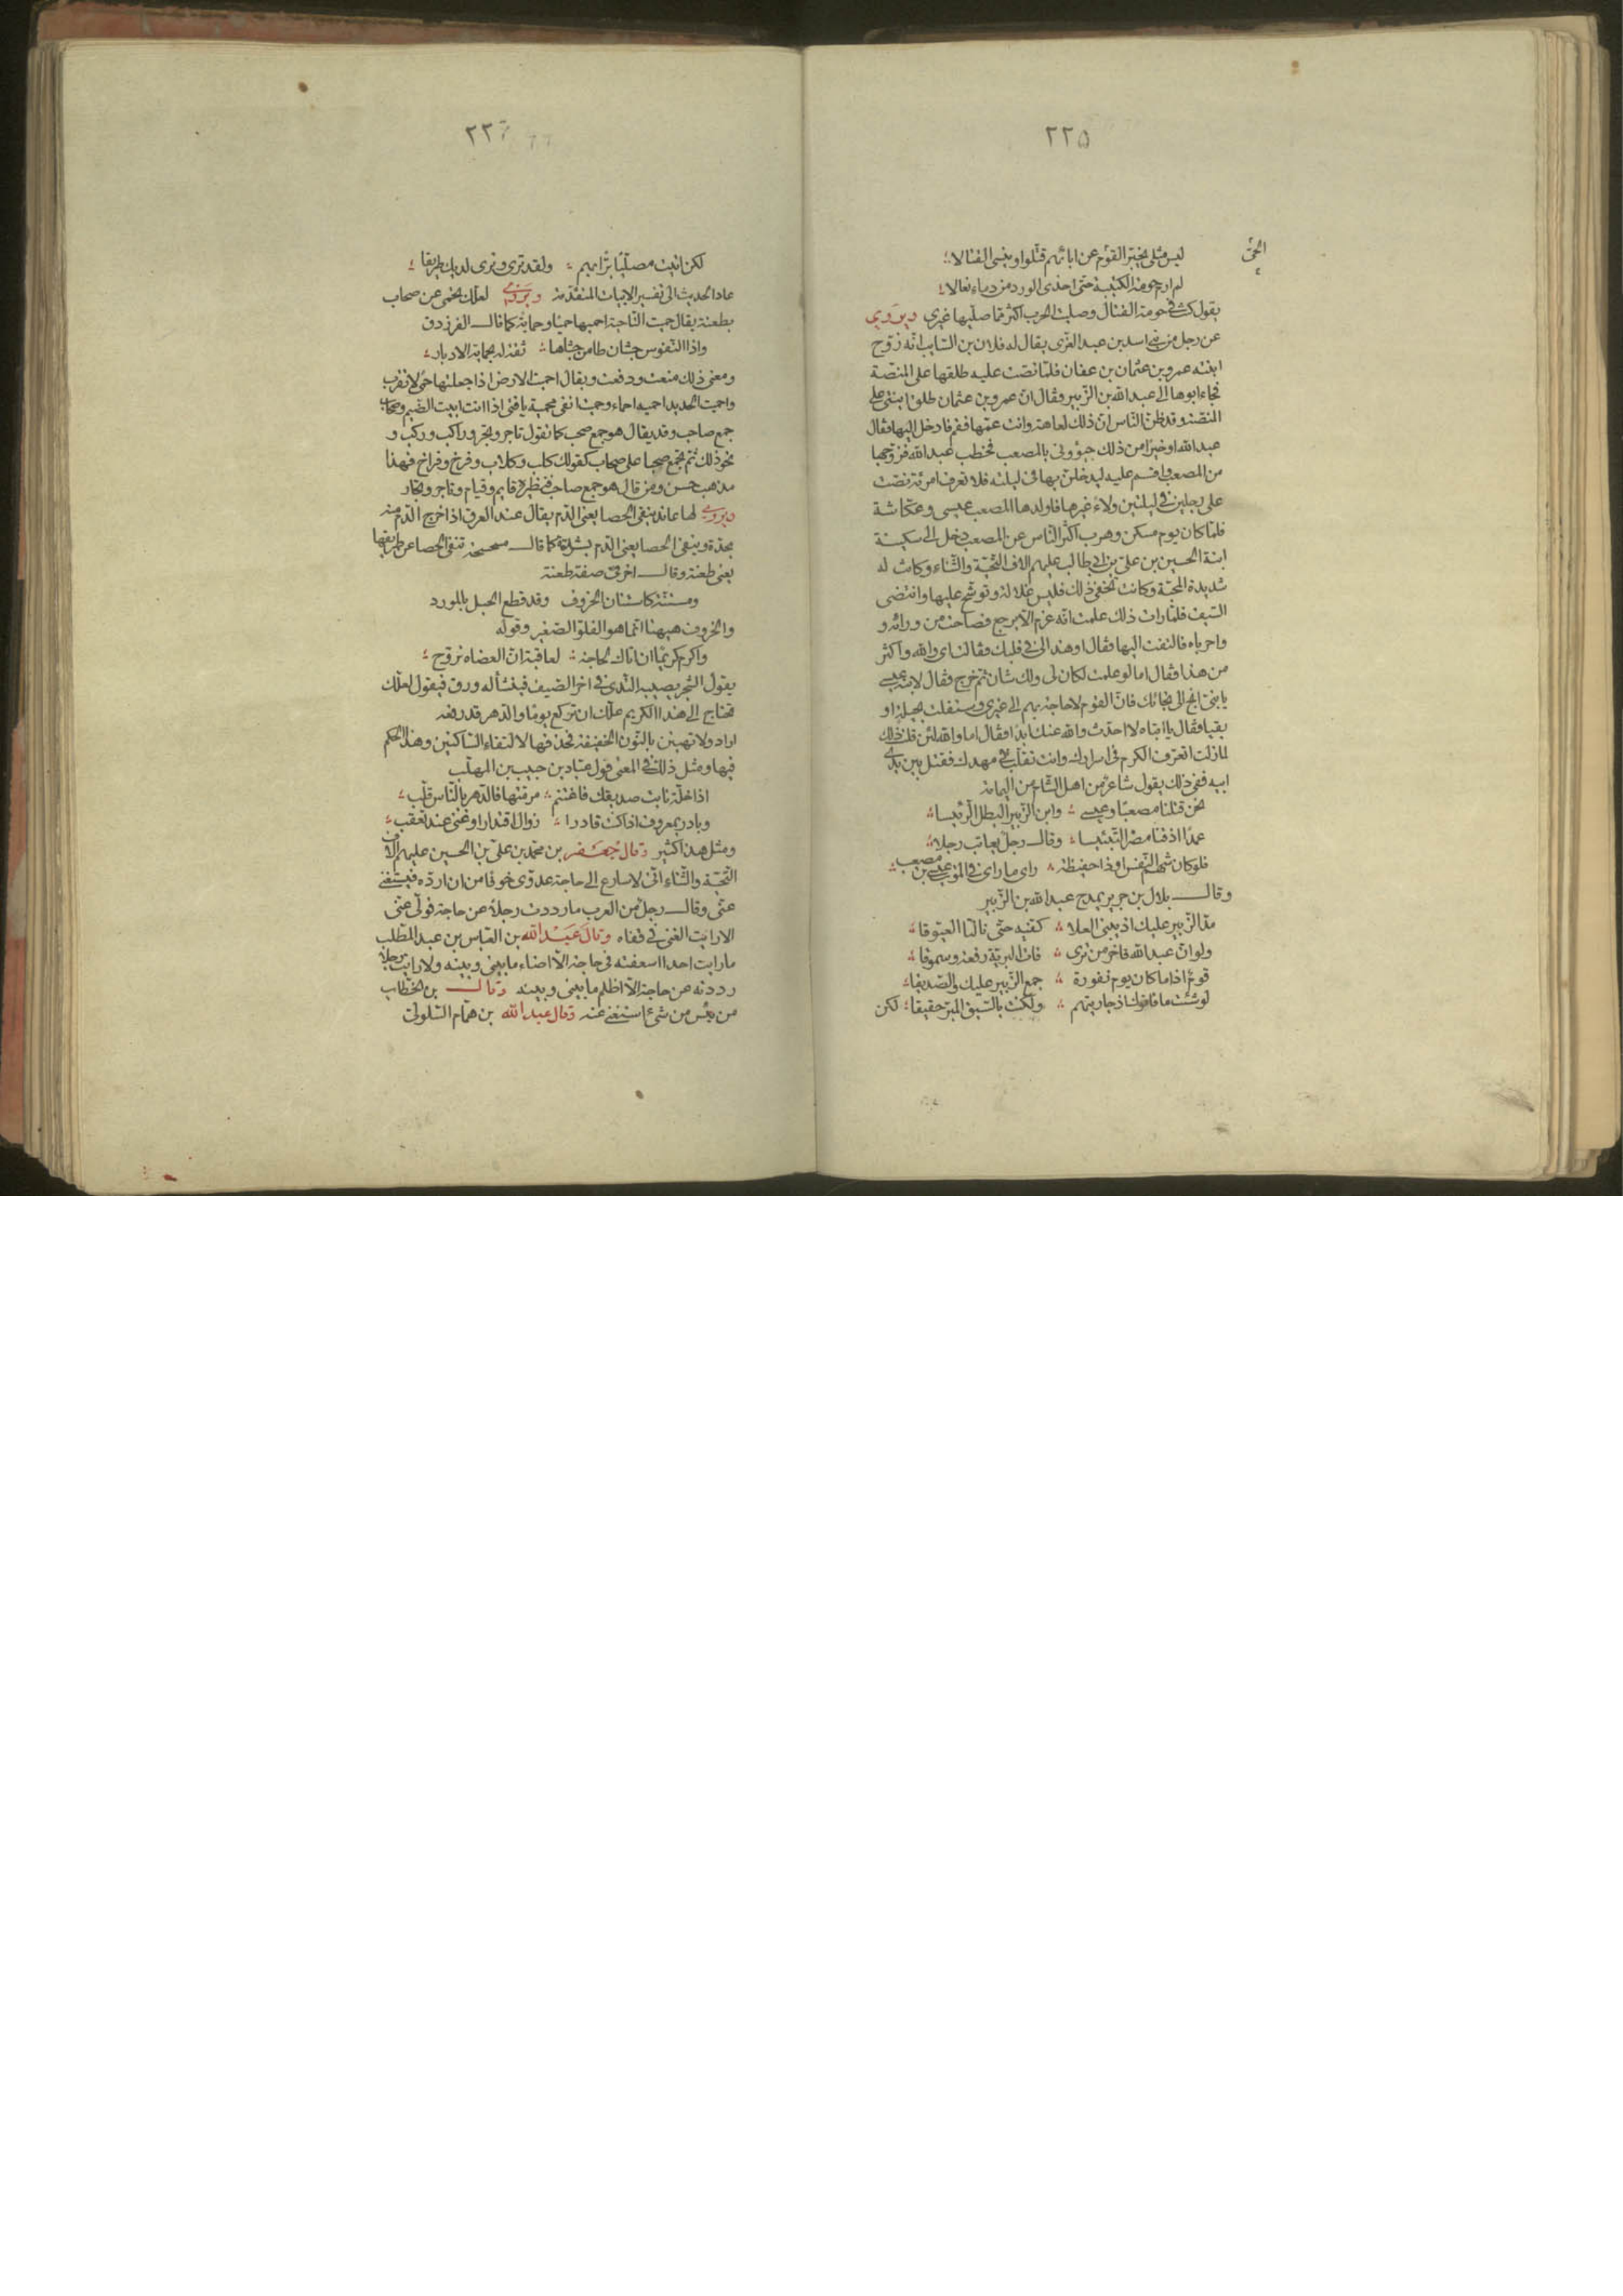 ٢٢٥
ليس مثلى يخبر القوم عن ابائهم قتلوا وينسى القتالا
لم ارم حومة الكتيبة حتى احذى الورد من دماء نعالا
يقول كنت فى حومة القتال وصليت الحرب اكثر مما صليها غيرى ويروى
عن رجل من بنى اسد بن عبد العزى يقال له فلان بن السايب انه زوج
ابنته عمرو بن عثمان بن عفان فلما نصت عليه طلقها على المنصة
فجاء ابوها الى عبد الله بن الزبير وقال ان عمرو بن عثمان طلق ابنتى على
المنصة وقد ظن الناس ان ذلك لعاهة وانت عمها فقم فادخل اليها فقال
عبد الله او خيرا من ذلك جيؤونى بالمصعب فخطب عبد الله فزوجها
من المصعب واقسم عليه ليدخلن بها فى ليلته فلا تعرف امرئة نصت
على رجلين فى ليلتين ولاء غيرها فاولدها المصعب عيسى وعكاشة
فلما كان يوم مسكن وهرب اكثر الناس عن المصعب دخل الى سكينة
ابنة الحسين بن على بن ابى طالب عليهم الاف التحية والثناء وكانت له
شديدة المحبة وكانت تخفى ذلك فلبس غلالة وتوشح عليها وانتضى
السيف فلما رات ذلك علمت انه عزم الا يرجع فصاحت من ورائه و
واحرباه فالتفت اليها وقال اوهذا لى فى قلبك فقالت اى والله واكثر
من هذا فقال اما لو علمت لكان لى ولك شان ثم خرج وقال لابنه عيسى
يا بنى انج الى نجائك فان القوم لا حاجة بهم الى غيرى وستفلت بحيلة او
بقيا فقال يا ابتاه لا احدث والله عنك ابدا فقال اما والله لئن قلت ذلك
لما زلت اتعرف الكرم فى اسرارك وانت تقلب فى مهدك فقتل بين يدى
ابيه ففى ذلك يقول شاعر من اهل الشام من اليمانة
نحن قتلنا مصعبا وعيسى وابن الزبير البطل الرئيسا
عمدا اذقنا مضر التبئيسا وقال رجل يعاتب رجلا
فلو كان شهم النفس او ذا حفيظة راى ما راى فى الموت عيسى بن مصعب
وقال بلال بن جرير يمدح عبد الله بن الزبير
مد الزبير عليك اذ يبنى العلا كنفيه حتى نالتا العيوقا
ولو ان عبد الله فاخر من ترى فات البرية رفعة وسموقا
قوم اذا ما كان يوم نفورة جمع الزبير عليك والصديقا
لو شئت ما فاتوك اذ جاريتهم ولكنت بالسبق المبر حقيقا لكن
٢٢٦
لكن اتيت مصليا برا بهم ولقد ترى ونرى لديك طريقا
عاد الحديث الى تفسير الابيات المتقدمة ويروى لعلك تحمى عن صحاب
بطعنة يقال حميت الناحية احميها حميا وحماية كما قال الفرزدق
واذا النفوس جشان طامن جشاها ثقة له بحماية الادبار
ومعنى ذلك منعت ودفعت ويقال احميت الارض اذا جعلتها حمى لا تقرب
واحميت الحديد احميه احماء وحميت انفى محمية يافتى اذا انت ابيت الضيم وصحاب
جمع صاحب وقد يقال هو جمع صحب كما تقول تاجر وتجر وراكب وركب و
نحو ذلك ثم تجمع صحبا على صحاب كقولك كلب وكلاب وفرخ وفراخ فهذا
مذهب حسن ومن قال هو جمع صاحب فنظيره قايم وقيام وتاجر وتجار
ويروى لها عاند ينفى الحصا يعنى الدم يقال عند العرق اذا خرج الدم منه
بحدة وينفى الحصا يعنى الدم بشدته كما قال مسحسحة تنفى الحصا عن طريقها
يعنى طعنة وقال اخر فى صفة طعنة
ومستنة كاستنان الخروف وقد قطع الحبل بالمرود
والخروف هيهنا انما هو الفلو الصغير وقوله
واكرم كريما ان اتاك لحاجة لعاقبة ان العضاه تروح
يقول الشجر يصيبه الندى فى اخر الصيف فينشأ له ورق فيقول لعلك
تحتاج الى هذا الكريم علك ان تركع يوما والدهر قد رفعه
اراد ولا تهينن بالنون الخفيفة فحذفها لالتقاء الساكنين وهذا الحكم
فيها ومثل ذلك فى المعنى قول عباد بن حبيب بن المهلب
اذا خلة نابت صديقك فاغتنم مرمتها فالدهر بالناس قلب
وبادر بمعروف اذا كنت قادرا زوال اقتدار او غنى عنك يعقب
ومثل هذا كثير وقال جعفر بن محمد بن على بن الحسين عليهم الاف
التحية والثناء انى لاسارع الى حاجة عدوى خوفا من ان ارده فيستغنى
عنى وقال رجل من العرب ما رددت رجلا عن حاجة فولى عنى
الا رايت الغنى فى قفاه وقال عبد الله بن العباس بن عبد المطلب
ما رايت احدا اسعفته فى حاجة الا اضاء ما بينى وبينه ولا رايت رجلا
رددته عن حاجة الا اظلم ما بينى وبينه وقال بن الخطاب
من يئس من شئ استغنى عنه وقال عبد الله بن همام السلولى